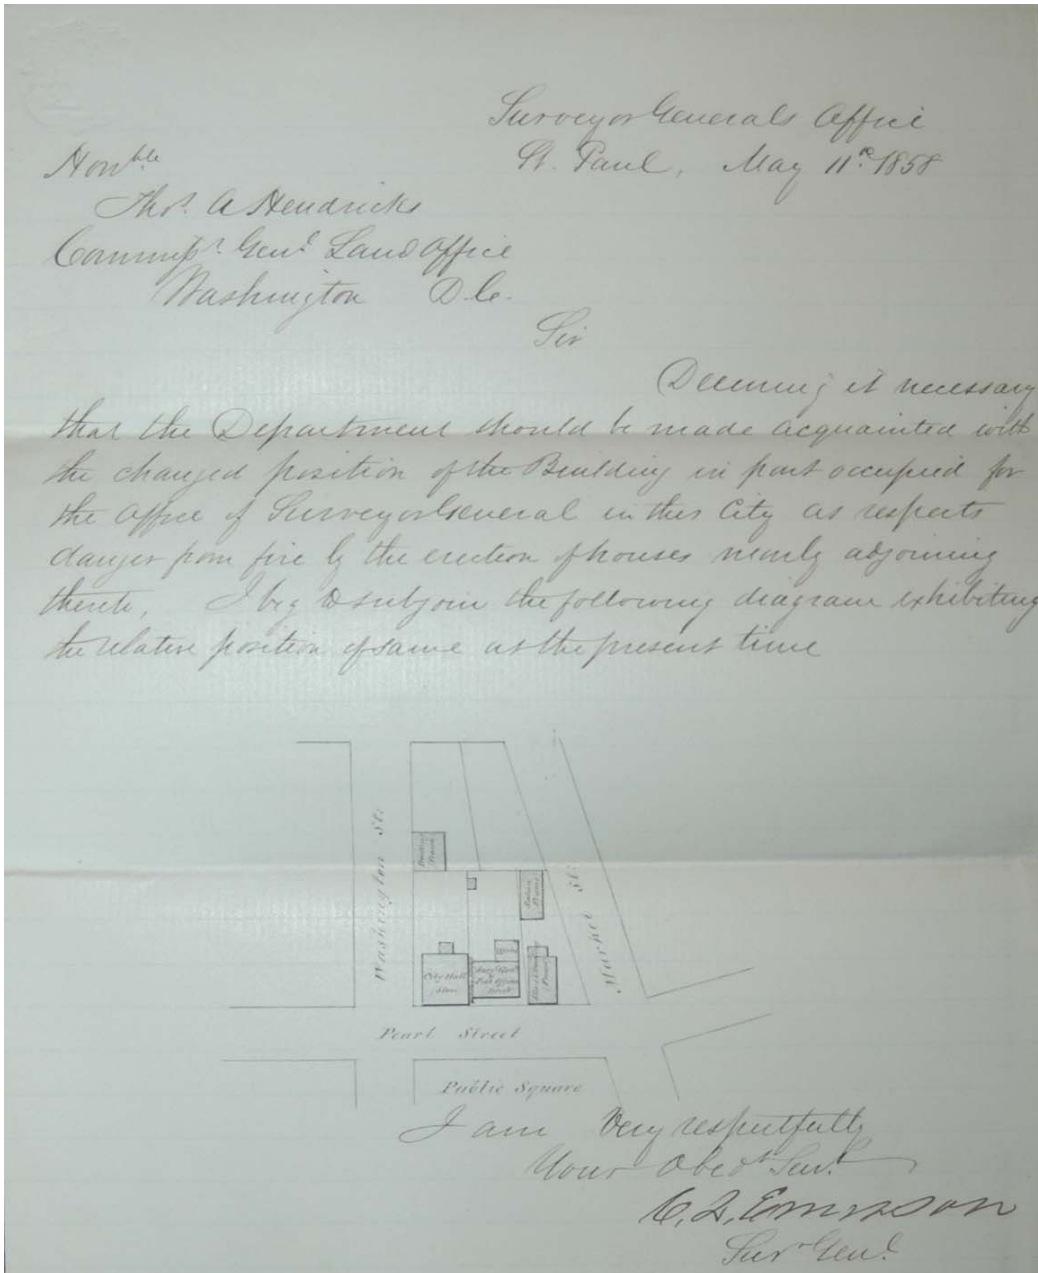 Surveyor Generals Office
St. Paul, May 11th 1858
Honble
Thos. A Hendricks
Commissr. Genl Land Office
Washington D.C.
Sir
Deeming it necessary
that the Department should be made acquainted with
the changed position of the Building in part occupied for
the Office of Surveyor General in this City as respects
danger from fire by the erection of houses nearly adjoining
thereto, I beg to subjoin the following diagram exhibiting
the relative position of same at the present time
Washington St.
Market St.
Dwelling House
City Hall
Surv. Genl.
Post Office
Pearl Street
Public Square
I am Very respectfully
Your Obedt Servt
C. L. Emerson
Surr Genl